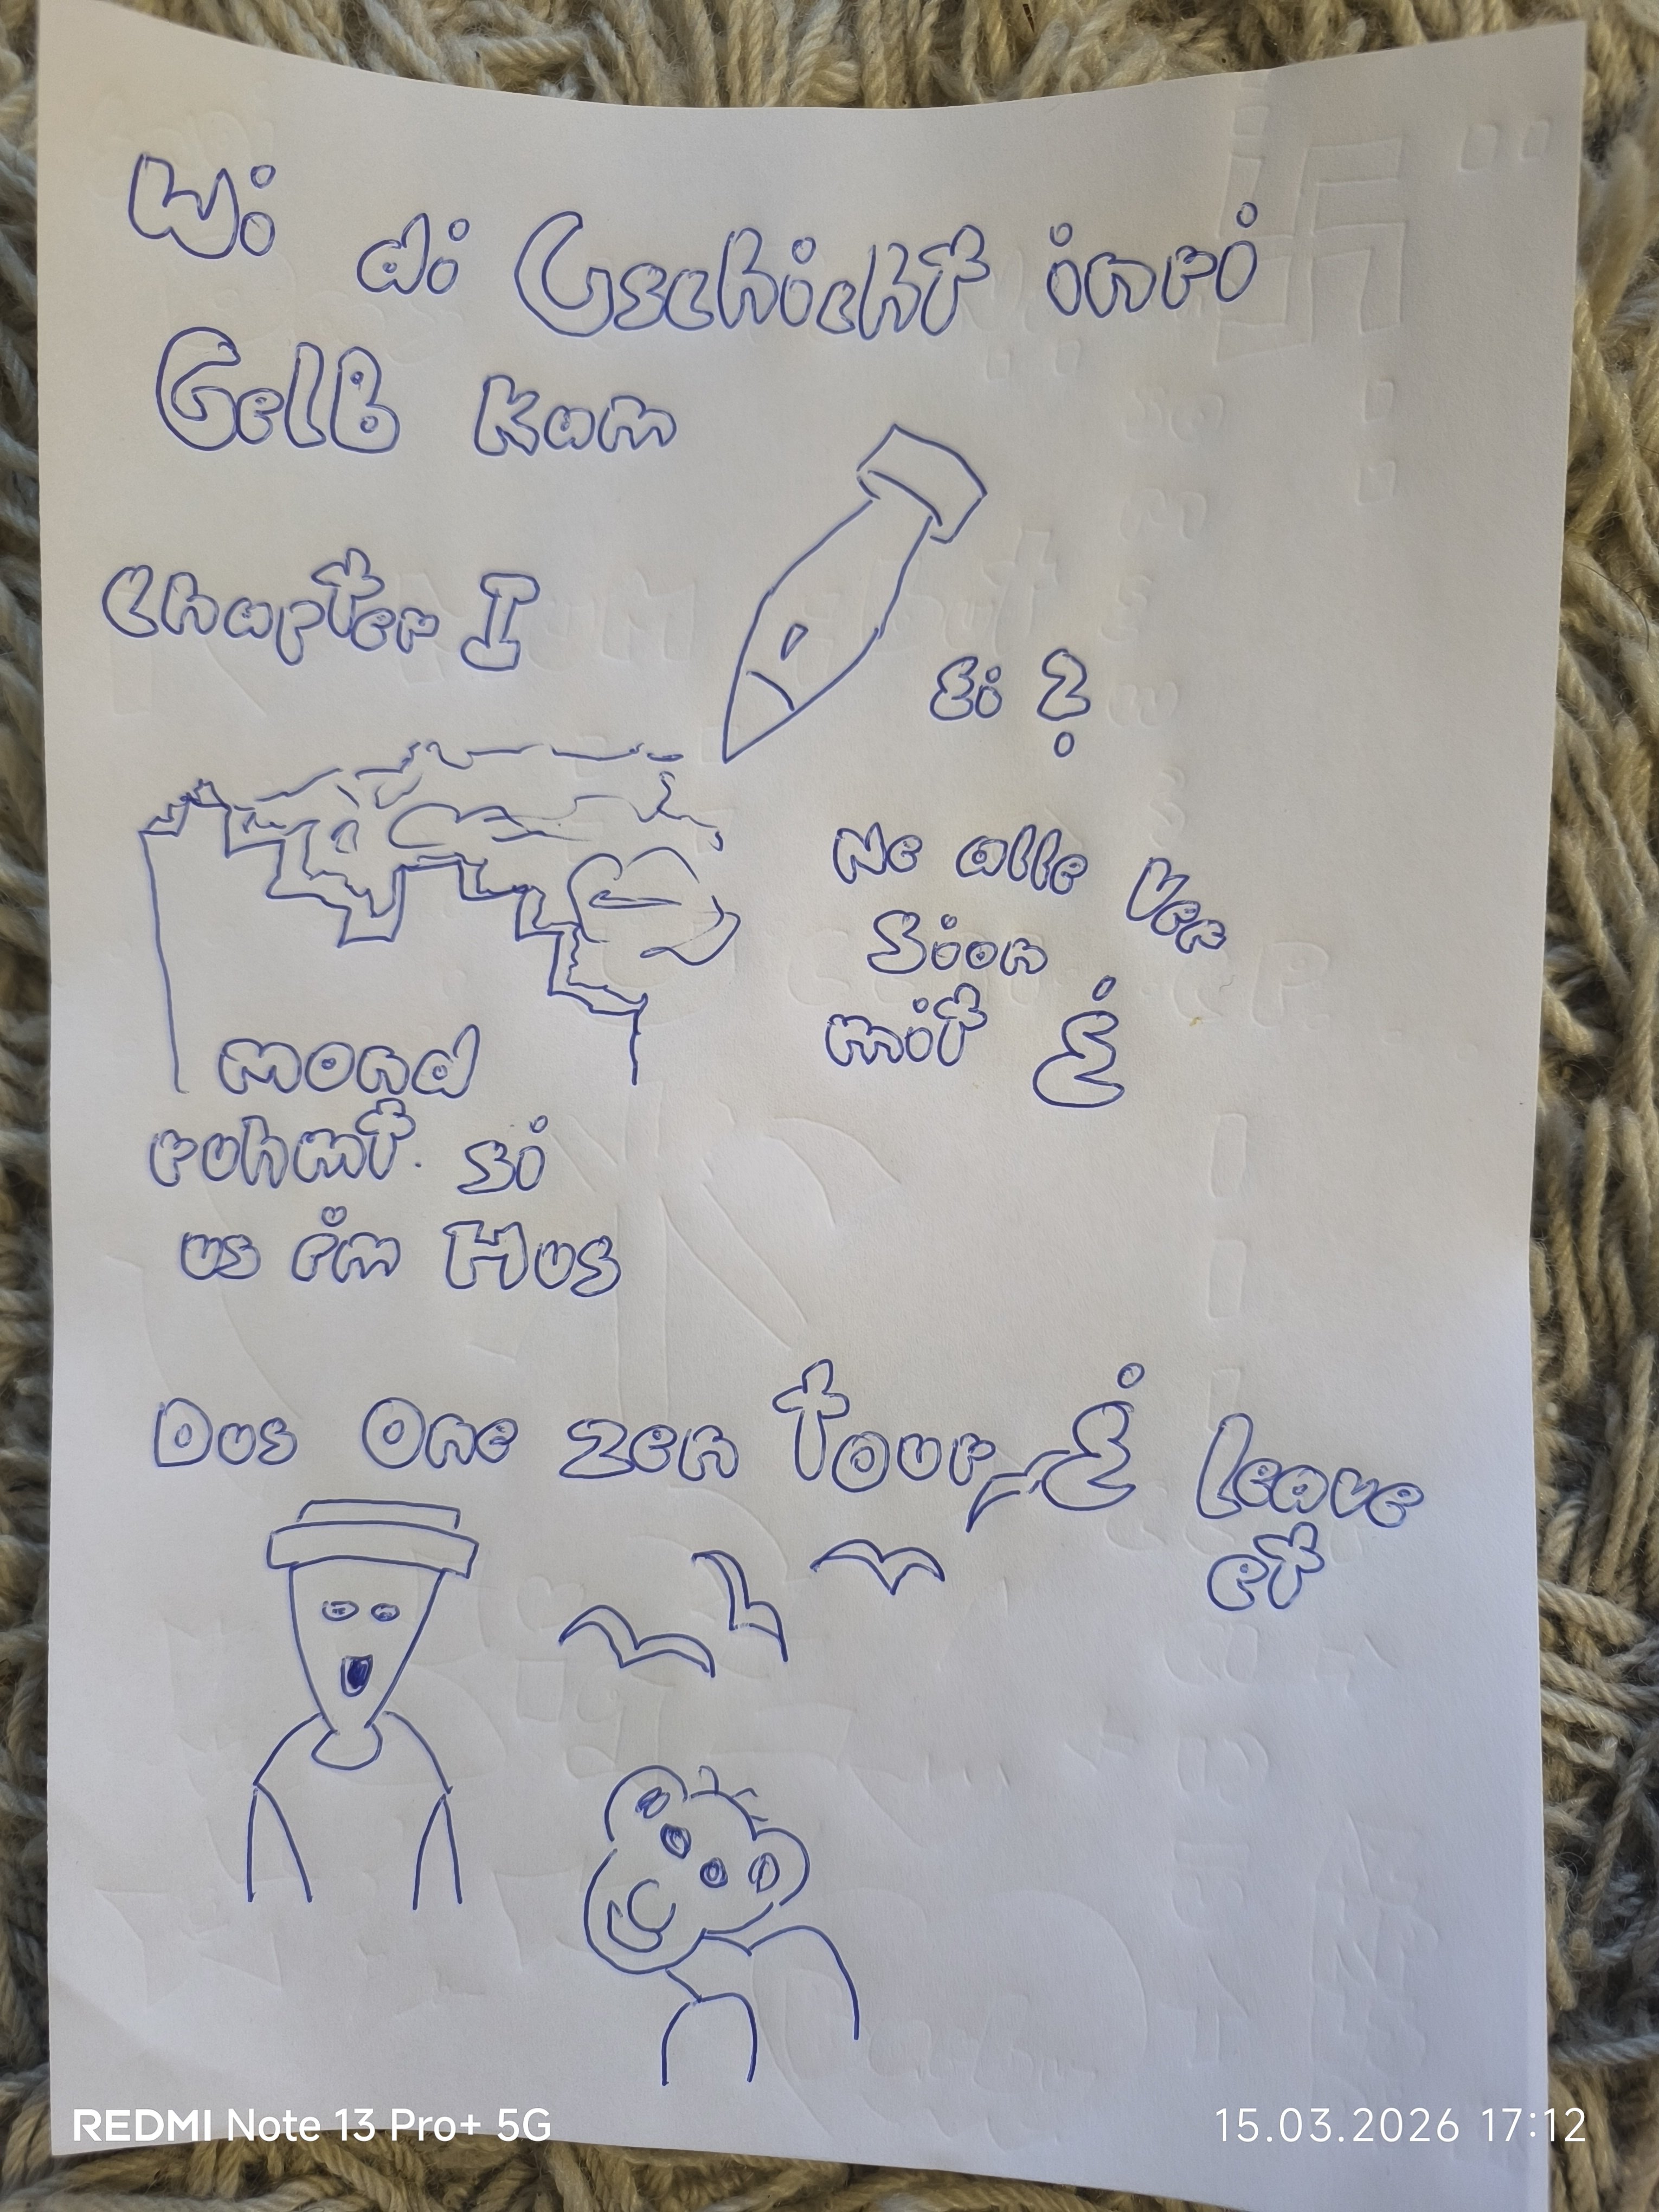 Wi di Gschicht inri
Gelb kam
Chapter I
Ei ?
Ne alle Ver
Sion
mit Ė
mond
ruhmt si
us im Hus
Dus One zen Tour, Ė leave
et
REDMI Note 13 Pro+ 5G
15.03.2026 17:12